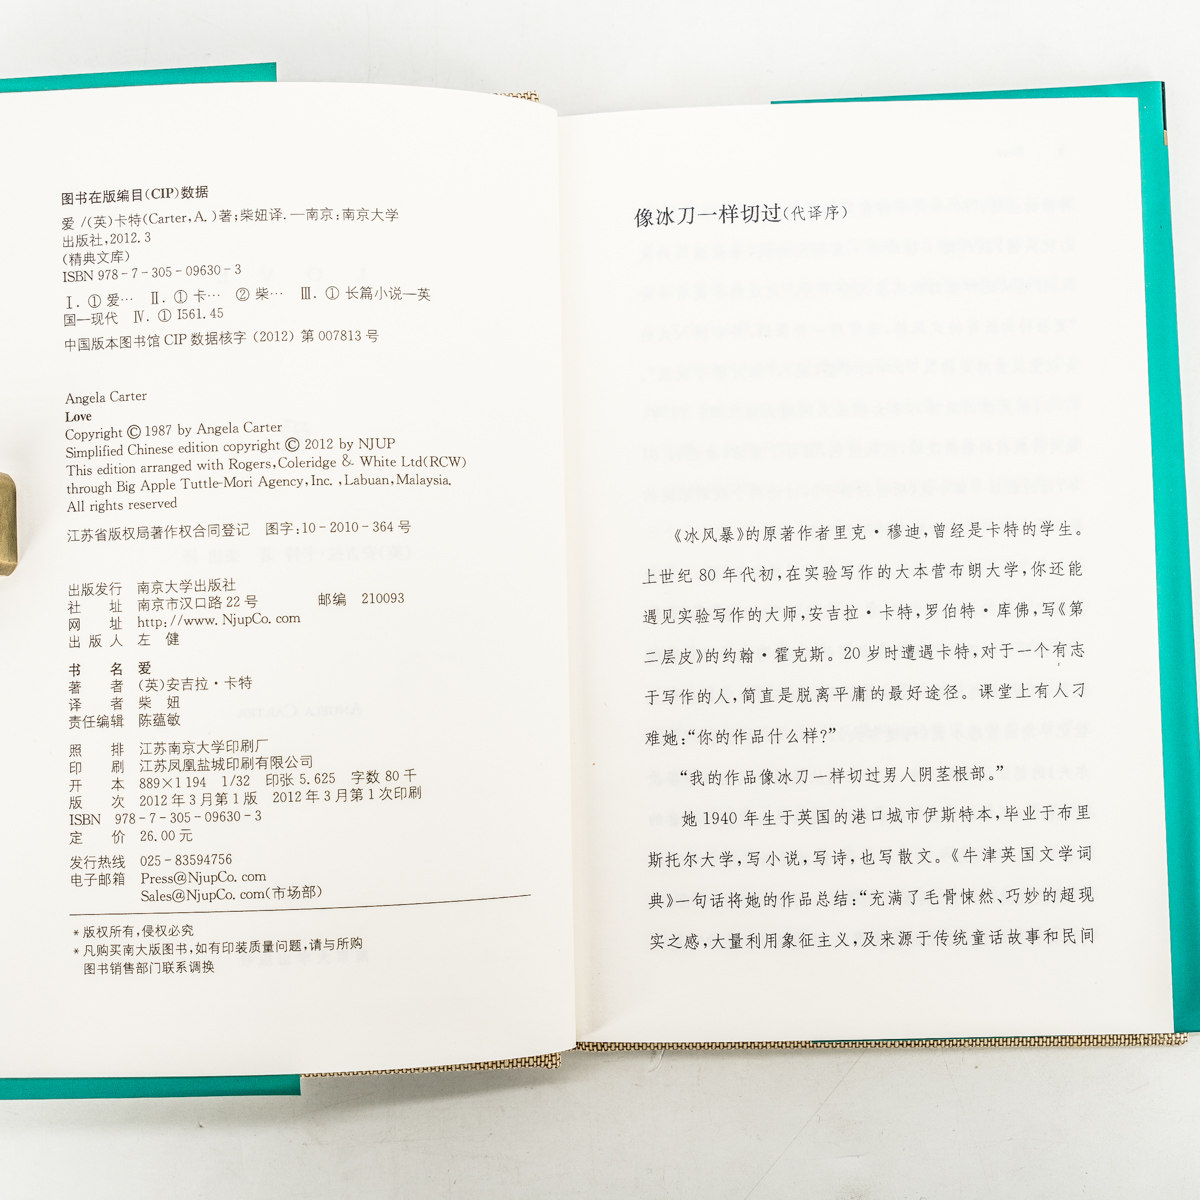 图书在版编目(CIP)数据
爱 /(英)卡特(Carter,A.)著;柴妞译.—南京:南京大学
出版社,2012.3
(精典文库)
ISBN 978-7-305-09630-3
Ⅰ.①爱… Ⅱ.①卡… ②柴… Ⅲ.①长篇小说—英
国—现代 Ⅳ.①I561.45
中国版本图书馆CIP数据核字(2012)第007813号
Angela Carter
Love
Copyright © 1987 by Angela Carter
Simplified Chinese edition copyright © 2012 by NJUP
This edition arranged with Rogers,Coleridge & White Ltd(RCW)
through Big Apple Tuttle-Mori Agency,Inc.,Labuan,Malaysia.
All rights reserved
江苏省版权局著作权合同登记 图字:10-2010-364号
出版发行 南京大学出版社
社 址 南京市汉口路22号 邮编 210093
网 址 http://www.NjupCo.com
出 版 人 左 健
书 名 爱
著 者 (英)安吉拉·卡特
译 者 柴 妞
责任编辑 陈蕴敏
照 排 江苏南京大学印刷厂
印 刷 江苏凤凰盐城印刷有限公司
开 本 889×1194 1/32 印张 5.625 字数 80千
版 次 2012年3月第1版 2012年3月第1次印刷
ISBN 978-7-305-09630-3
定 价 26.00元
发行热线 025-83594756
电子邮箱 Press@NjupCo.com
Sales@NjupCo.com(市场部)
* 版权所有,侵权必究
* 凡购买南大版图书,如有印装质量问题,请与所购
图书销售部门联系调换
像冰刀一样切过(代译序)
《冰风暴》的原著作者里克·穆迪,曾经是卡特的学生。
上世纪80年代初,在实验写作的大本营布朗大学,你还能
遇见实验写作的大师,安吉拉·卡特,罗伯特·库佛,写《第
二层皮》的约翰·霍克斯。20岁时遭遇卡特,对于一个有志
于写作的人,简直是脱离平庸的最好途径。课堂上有人刁
难她:“你的作品什么样?”
“我的作品像冰刀一样切过男人阴茎根部。”
她1940年生于英国的港口城市伊斯特本,毕业于布里
斯托尔大学,写小说,写诗,也写散文。《牛津英国文学词
典》一句话将她的作品总结:“充满了毛骨悚然、巧妙的超现
实之感,大量利用象征主义,及来源于传统童话故事和民间